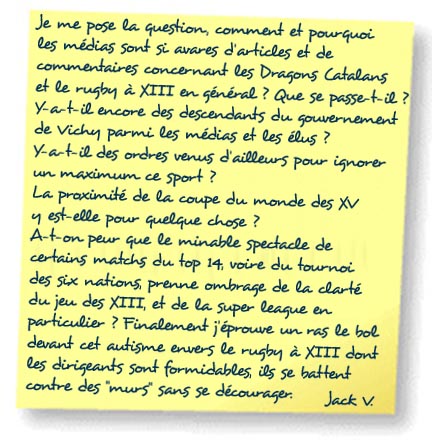 Je me pose la question, comment et pourquoi
les médias sont si avares d'articles et de
commentaires concernant les Dragons Catalans
et le rugby à XIII en général ? Que se passe-t-il ?
Y-a-t-il encore des descendants du gouvernement
de Vichy parmi les médias et les élus ?
Y-a-t-il des ordres venus d'ailleurs pour ignorer
un maximum ce sport ?
La proximité de la coupe du monde des XV
y est-elle pour quelque chose ?
A-t-on peur que le minable spectacle de
certains matchs du top 14, voire du tournoi
des six nations, prenne ombrage de la clarté
du jeu des XIII, et de la super league en
particulier ? Finalement j'éprouve un ras le bol
devant cet autisme envers le rugby à XIII dont
les dirigeants sont formidables, ils se battent
contre des "murs" sans se décourager.
Jack V.